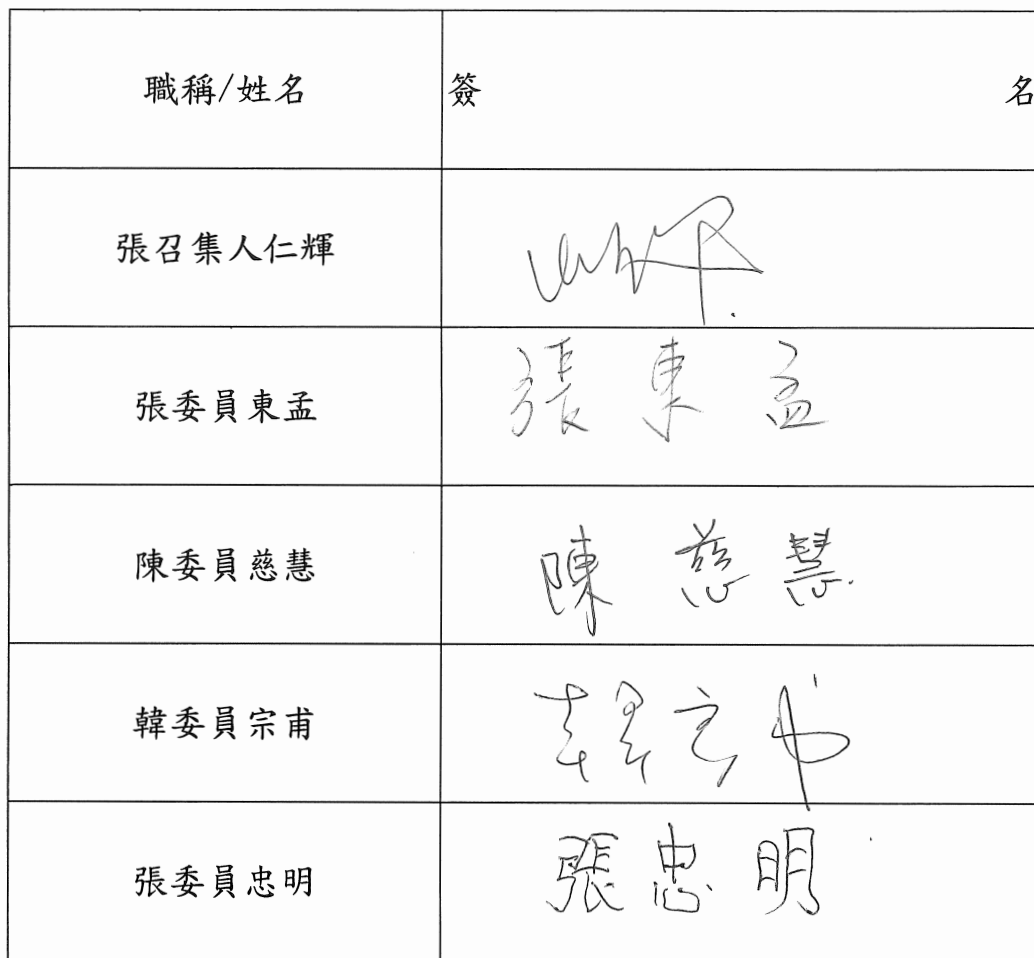 職稱/姓名 簽 名
張召集人仁輝
張委員東孟 張東孟
陳委員慈慧 陳慈慧
韓委員宗甫 韓宗甫
張委員忠明 張忠明